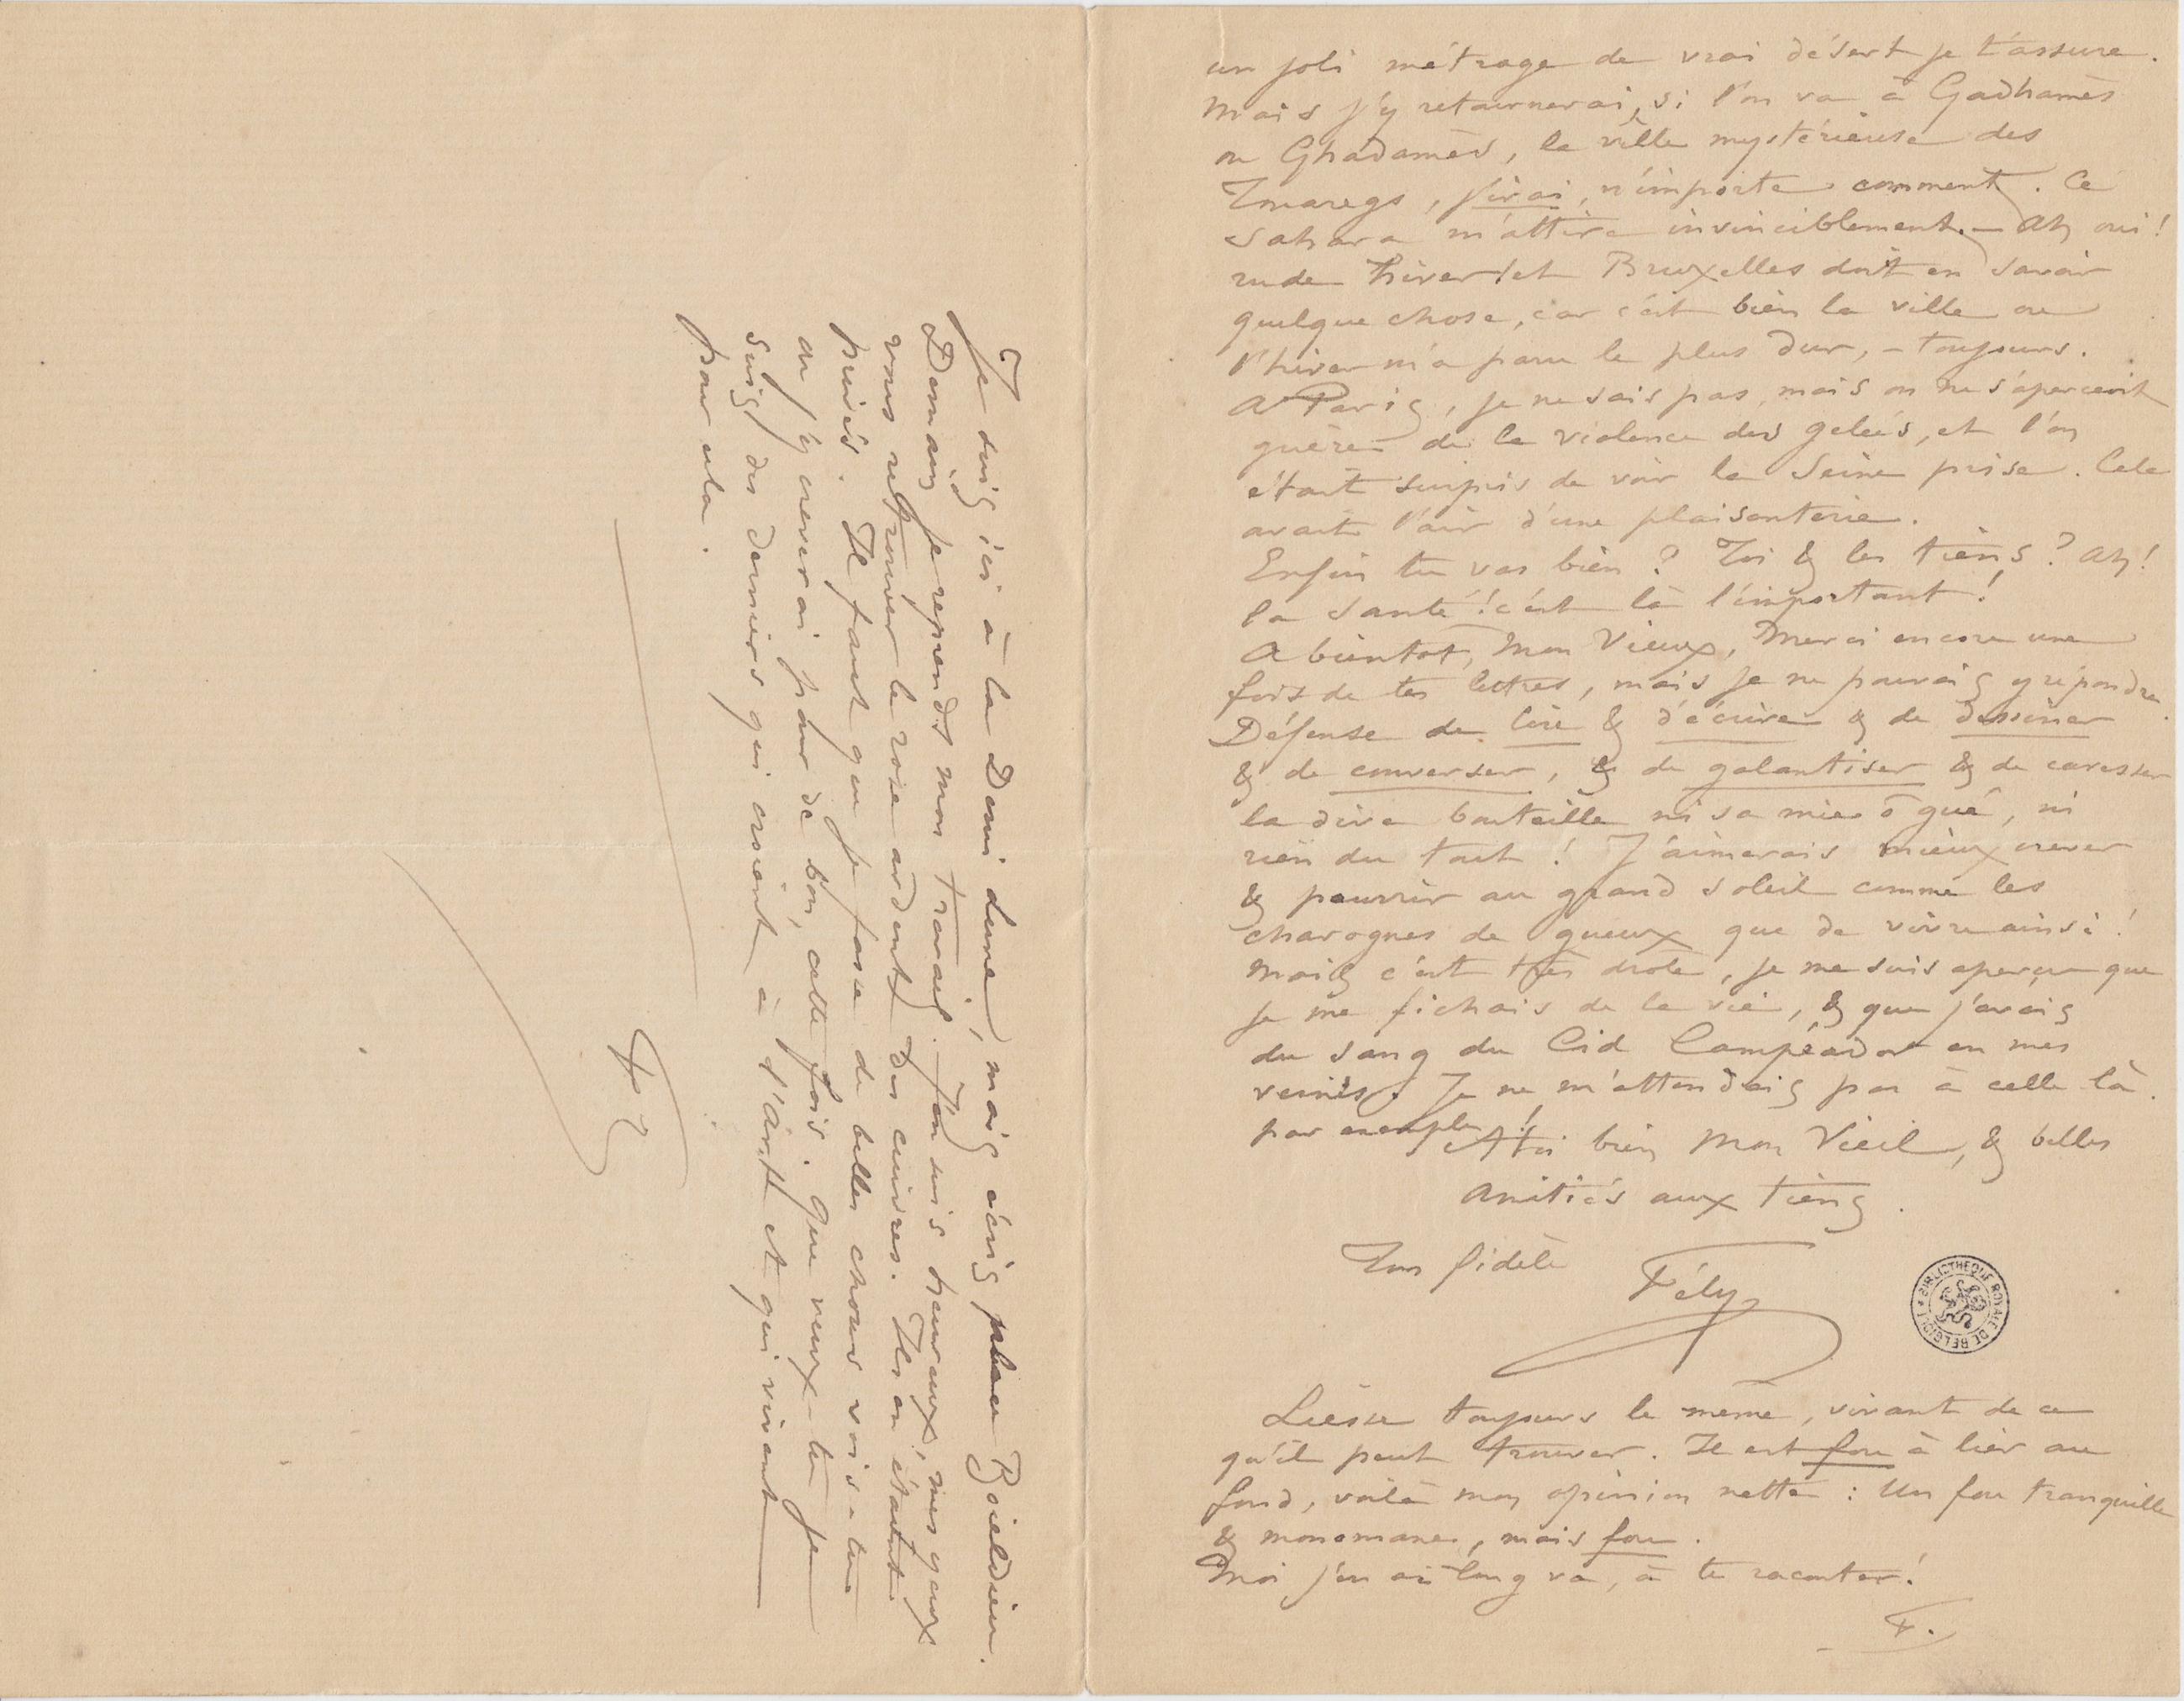 un joli métrage de vrai désert je t'assure.
Mais j'y retournerai, si l'on va à Gadhamès
ou Ghadamès, la ville mystérieuse des
Touaregs, j'irai, n'importe comment. Ce
Sahara m'attire invinciblement. – Ah oui !
rude hiver ! et Bruxelles doit en savoir
quelque chose, car c'est bien la ville ou
l'hiver m'a paru le plus dur, – toujours.
A Paris, je ne sais pas, mais on ne s'apercevit
guère de la violence des gelées, et l'on
était surpris de voir la Seine prise. Cela
avait l'air d'une plaisanterie.
Enfin tu vas bien ? Toi & les tiens ? Ah !
la santé ! c'est là l'important !
A bientot, mon Vieux, Merci encore une
fois de tes lettres, mais je ne pouvais y répondre.
Défense de lire & d'écrire & de dessiner
& de converser, & de galantiser & de caresser
la dive bouteille ni sa mie ô gué, ni
rien du tout ! J'aimerais mieux crever
& pourrir au grand soleil comme les
charognes de gueux que de vivre ainsi !
Mais c'est très drole, je me suis aperçu que
je me fichais de la vie, & que j'avais
du sang du Cid Campéador en mes
veines. Je ne m'attendais pas à celle là
par exemple ! A toi bien mon Vieil, & belles
amitiés aux tiens.
Ton fidèle Fély
BIBLIOTHEQUE ROYALE DE BELGIQUE
Liesse toujours le même, vivant de ce
qu'il peut trouver. Il est fou à lier au
fond, voilà mon opinion nette : Un fou tranquille
& monomane, mais fou.
Moi j'en ai long va, à te raconter !
F.
Je suis ici à la Demi Lune, mais écris place Boieldieu.
Demain je reprends mon travail. J'en suis heureux, mes yeux
vous retrouver le rose ardent des cuivres. Ils en étaient
privés. Il faut que je fasse de belles choses vois-tu
ou j'y creverai pour de bon, cette fois. Que veux-tu je
suis des derniers qui croient à l'Art et qui vivent
pour cela.
F